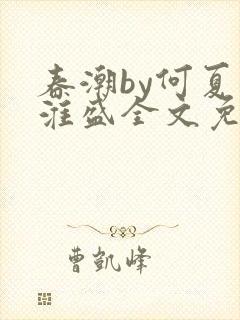 春潮by何夏
漼盛全文免
曹凯峰